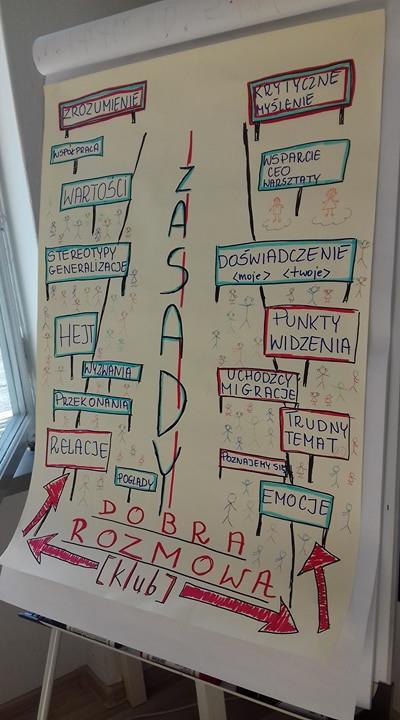 ZROZUMIENIE
WSPÓŁPRACA
WARTOŚCI
STEREOTYPY
GENERALIZACJE
HEJT
WYZWANIA
PRZEKONANIA
RELACJE
POGLĄDY
ZASADY
KRYTYCZNE
MYŚLENIE
WSPARCIE
CEO
WARSZTATY
DOŚWIADCZENIE
<moje> <twoje>
PUNKTY
WIDZENIA
UCHODŹCY
MIGRACJE
TRUDNY
TEMAT
POZNAJEMY SIĘ
EMOCJE
DOBRA
ROZMOWA
[Klub]